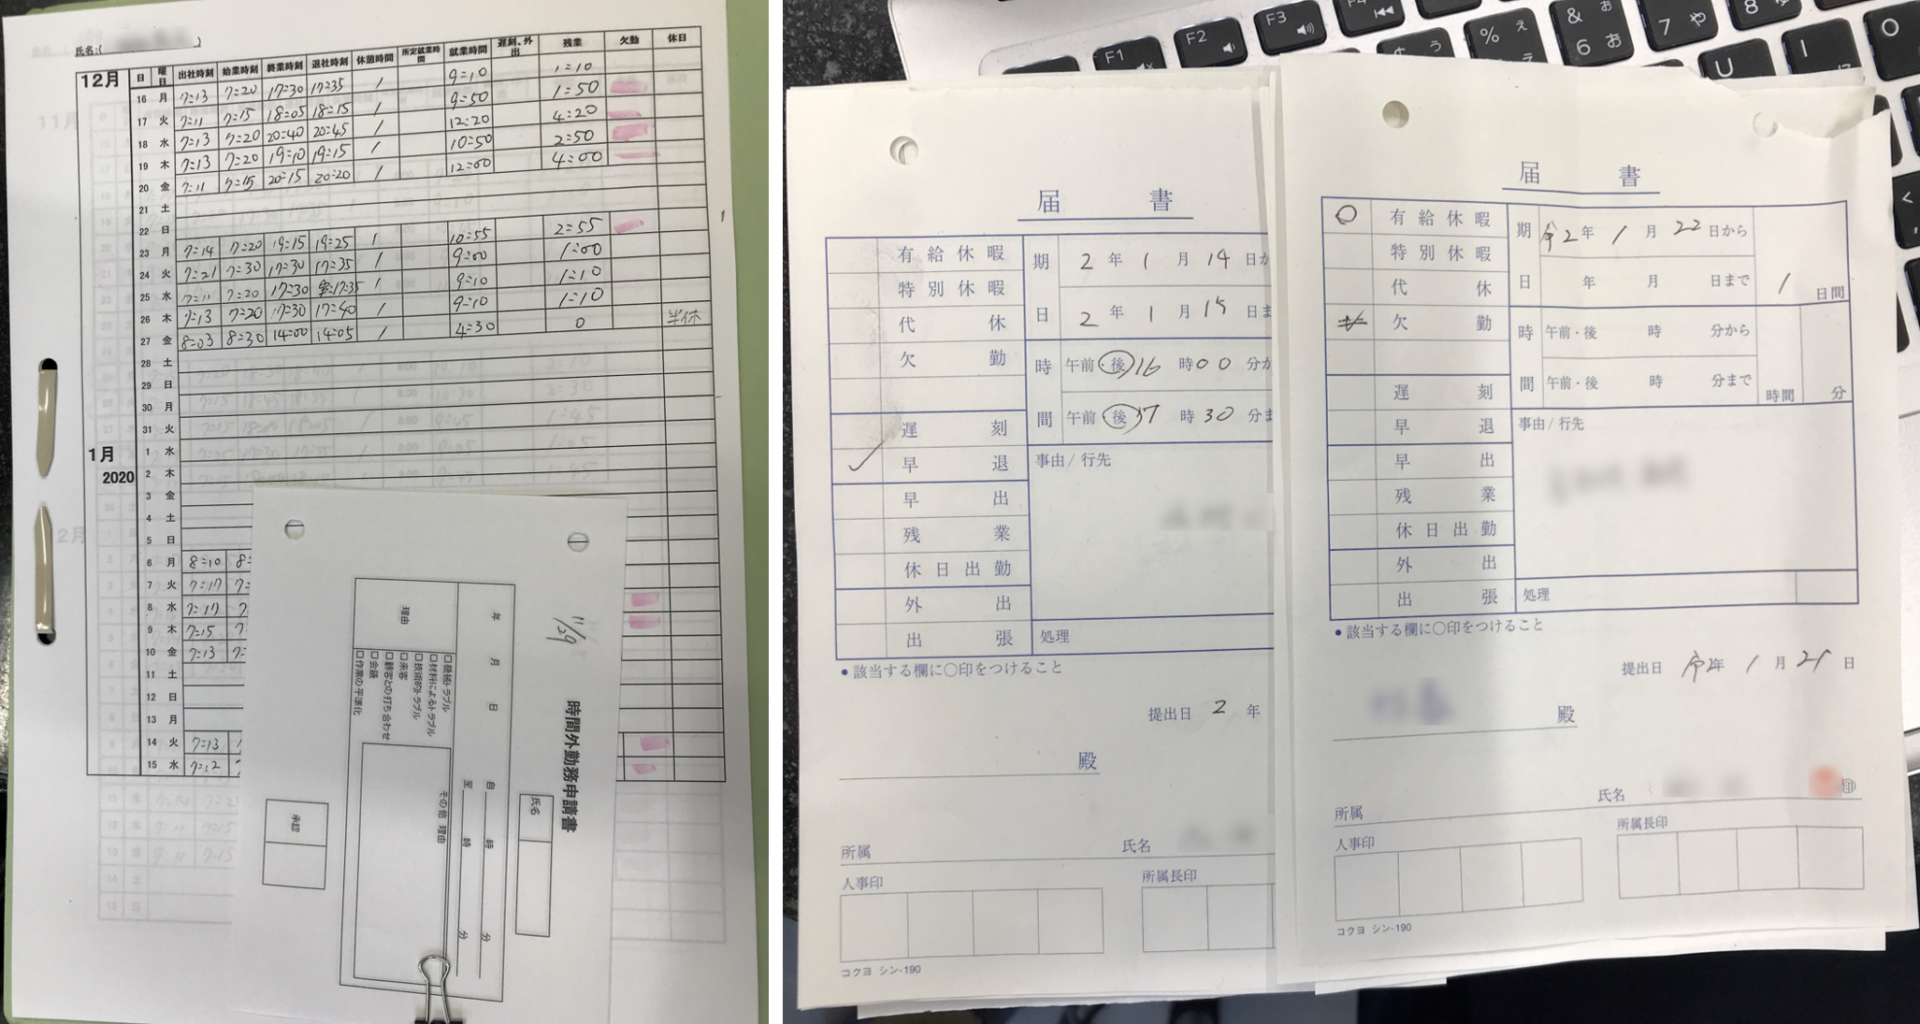 氏名:( )
12月 日 曜日 出社時刻 始業時刻 終業時刻 退社時刻 休憩時間 所定就業時間 就業時間 遅刻、外出 残業 欠勤 休日
16 月 7:13 7:20 17:30 17:35 1 9:10 1:10
17 火 7:11 7:15 18:05 18:15 1 9:50 1:50
18 水 7:13 7:20 20:40 20:45 1 12:20 4:20
19 木 7:13 7:20 19:10 19:15 1 10:50 2:50
20 金 7:11 7:15 20:15 20:20 1 12:00 4:00
21 土
22 日
23 月 7:14 7:20 19:15 19:25 1 10:55 2:55
24 火 7:21 7:30 17:30 17:35 1 9:00 1:00
25 水 7:11 7:20 17:30 17:35 1 9:10 1:10
26 木 7:13 7:20 17:30 17:40 1 9:10 1:10
27 金 8:03 8:30 14:00 14:05 1 4:30 0 半休
28 土
29 日
30 月
31 火
1月 1 水
2020 2 木
3 金
4 土
5 日
6 月 8:10 8:
7 火 7:17 7:
8 水 7:17 7
9 木 7:15 7
10 金 7:13 7:
11 土
12 日
13 月
14 火 7:13
15 水 7:12
11/29
時間外勤務申請書
氏名
年 月 日
自 時 分
至 時 分
理由
□機械トラブル
□材料によるトラブル
□技術的トラブル
□来客
□顧客との打ち合わせ
□会議
□作業の平準化
その他 理由
承認
届 書
有給休暇
特別休暇
代休
欠勤
遅刻
早退
早出
残業
休日出勤
外出
出張
期日
2 年 1 月 14 日か
2 年 1 月 15 日ま
時間
午前・後 16 時 00 分か
午前・後 17 時 30 分ま
事由/行先
処理
●該当する欄に○印をつけること
提出日 2 年
殿
所属 氏名
人事印 所属長印
コクヨ シン-190
届 書
○ 有給休暇
特別休暇
代休
欠勤
遅刻
早退
早出
残業
休日出勤
外出
出張
期日
令2年 1 月 22 日から
年 月 日まで
1 日間
時間
午前・後 時 分から
午前・後 時 分まで
時間 分
事由/行先
処理
●該当する欄に○印をつけること
提出日 令2年 1 月 21 日
殿
所属 氏名 印
人事印 所属長印
コクヨ シン-190
F1
F2
F3
% え
5 う
& お
6 お
7 や
8
U
I
O